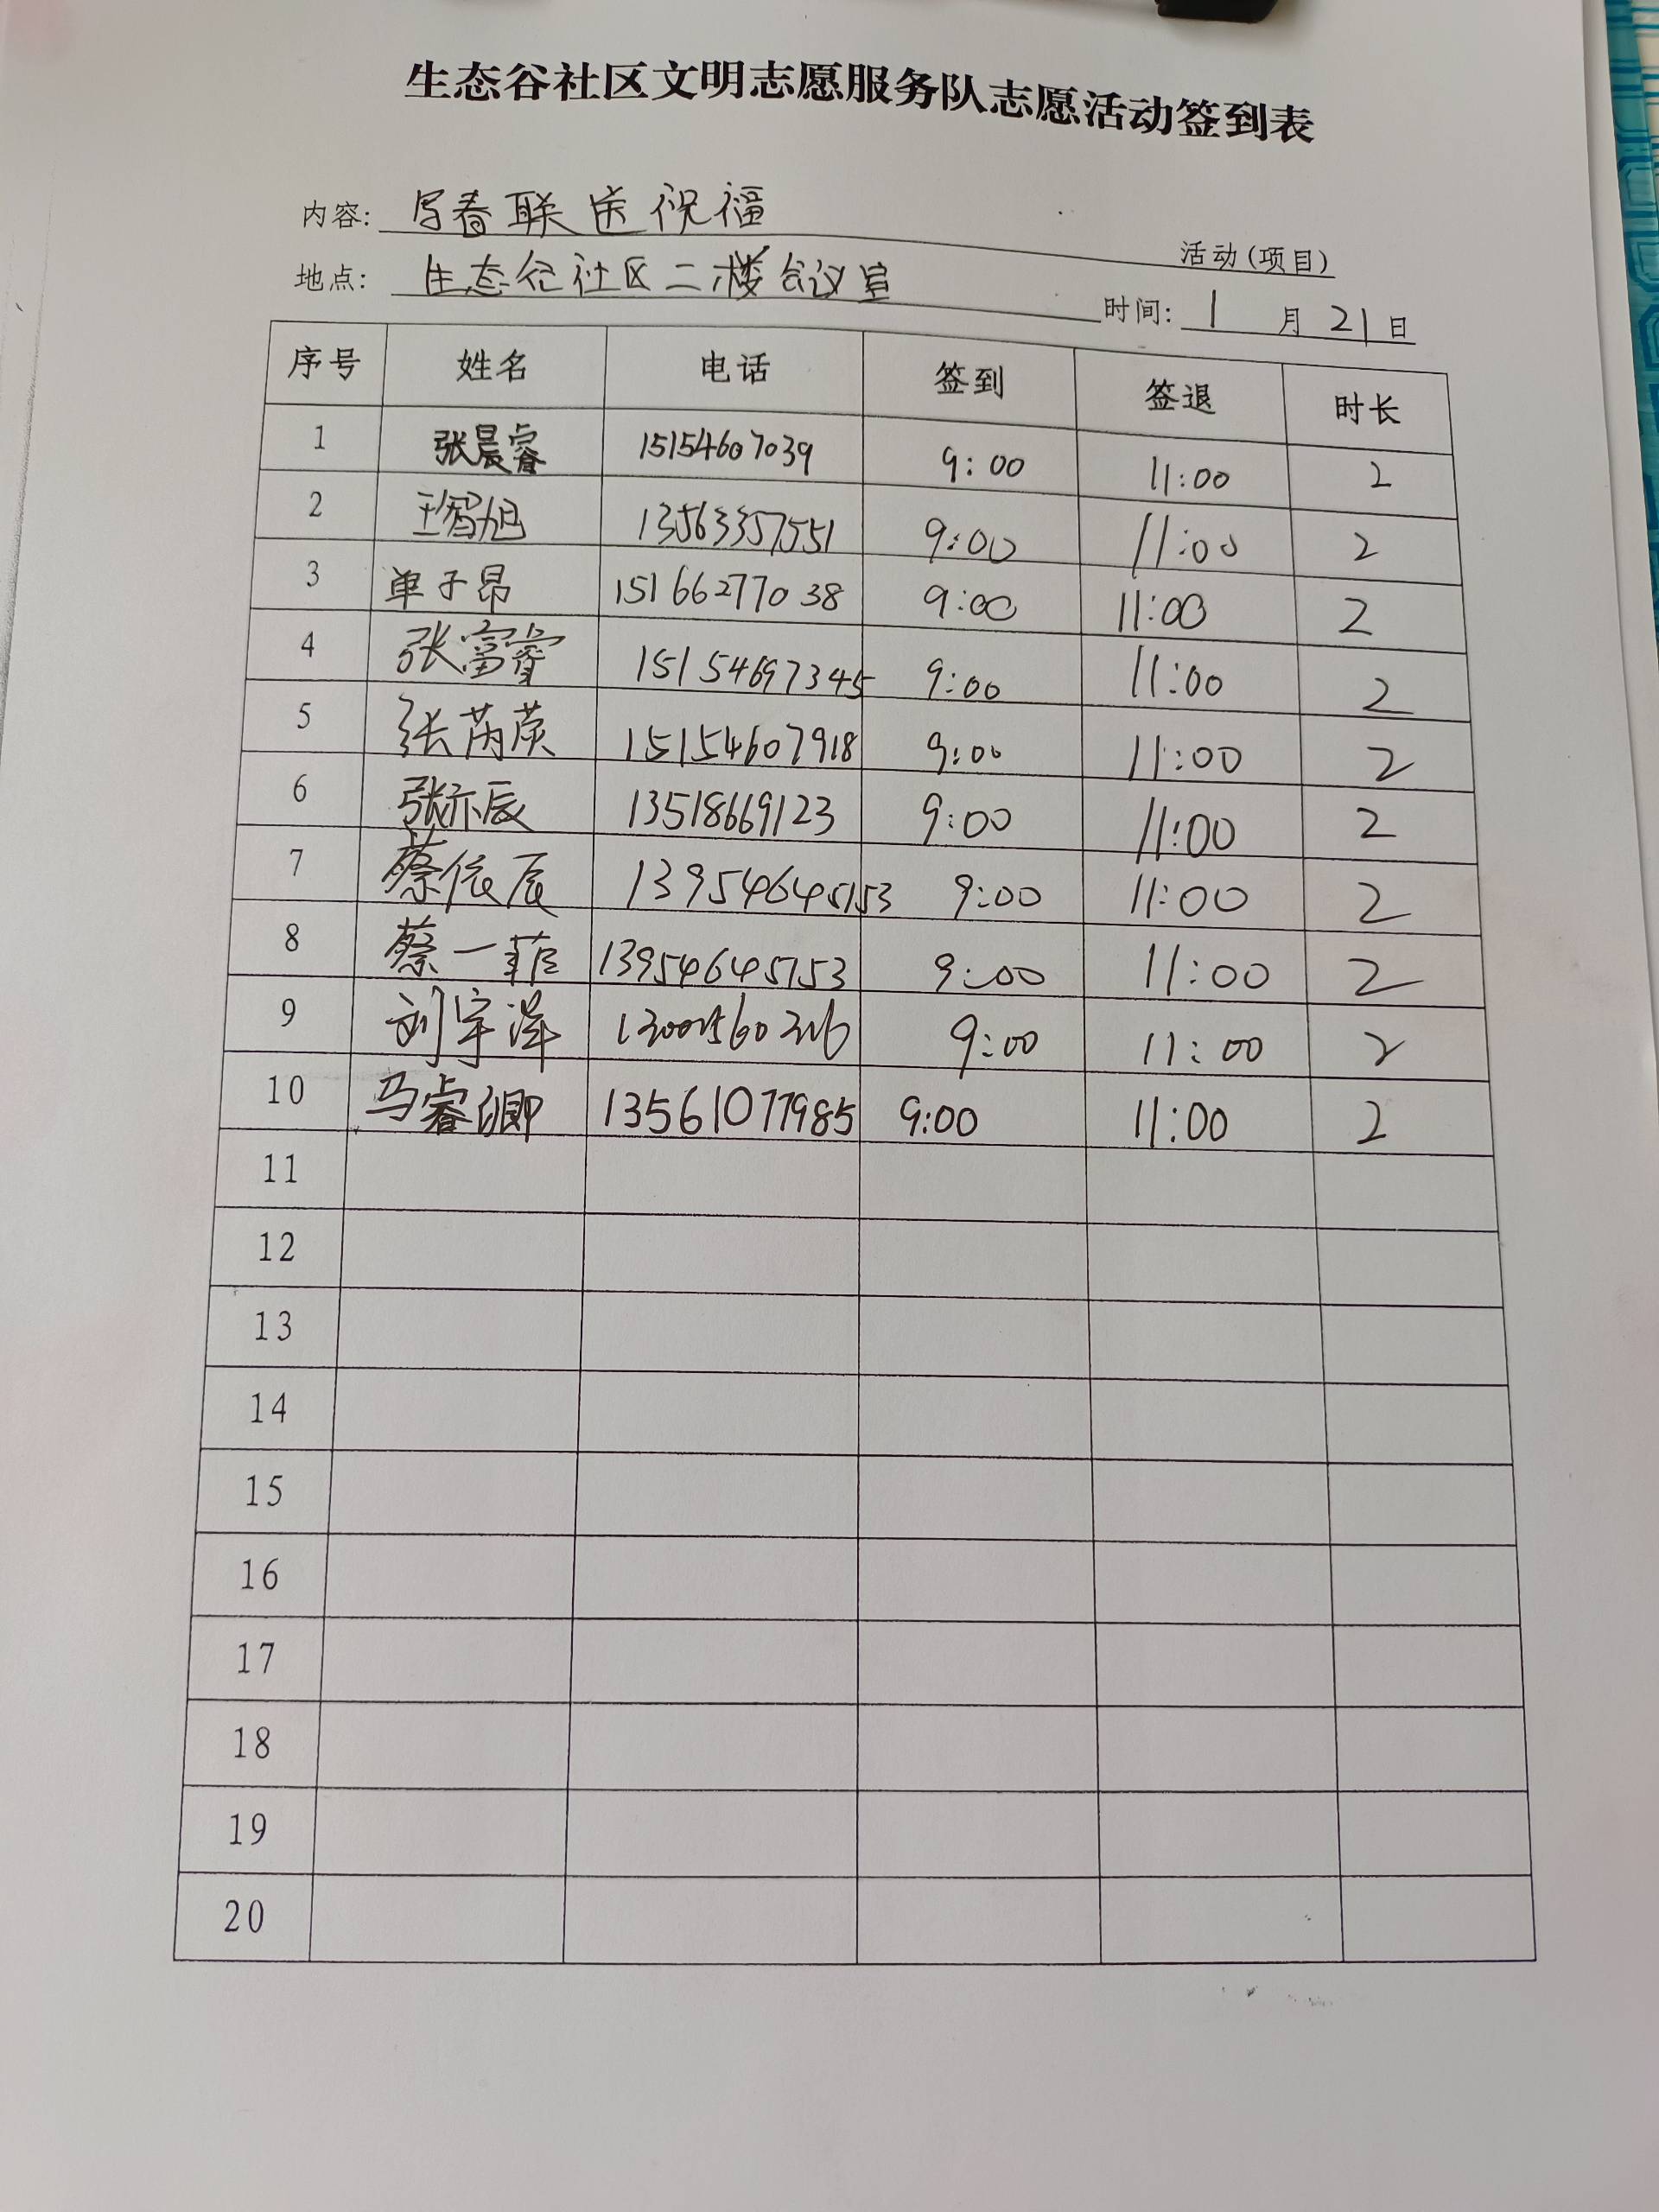 生态谷社区文明志愿服务队志愿活动签到表
内容: 写春联送祝福 活动(项目)
地点: 生态谷社区二楼会议室 时间: 1 月 21 日
序号 姓名 电话 签到 签退 时长
1 张晨睿 15154607039 9:00 11:00 2
2 王智旭 13563357551 9:00 11:00 2
3 单子昂 15166277038 9:00 11:00 2
4 张富睿 15154697345 9:00 11:00 2
5 张芮荧 15154607918 9:00 11:00 2
6 张亦辰 13518669123 9:00 11:00 2
7 蔡依辰 13954645153 9:00 11:00 2
8 蔡一菲 13954645153 9:00 11:00 2
9 刘宇泽 9:00 11:00 2
10 马睿卿 13561077985 9:00 11:00 2
11
12
13
14
15
16
17
18
19
20